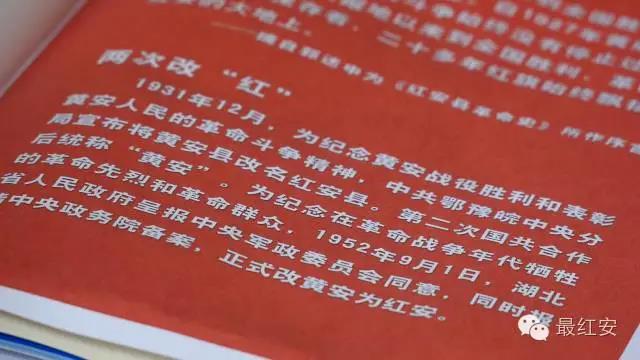 自1927年黄
斗争始终没有停止过
陲地以来到全国胜利，革
存者，二十多年红旗始终飘
的大地上。
——摘自郭述申为《红安县革命史》所作序言
两次改“红”
1931年12月，为纪念黄安战役胜利和表彰
黄安人民的革命斗争精神，中共鄂豫皖中央分
局宣布将黄安县改名红安县。第二次国共合作
后统称“黄安”。为纪念在革命战争年代牺牲
的革命先烈和革命群众，1952年9月1日，湖北
省人民政府呈报中央军政委员会同意，同时报
中央政务院备案，正式改黄安为红安。
最红安